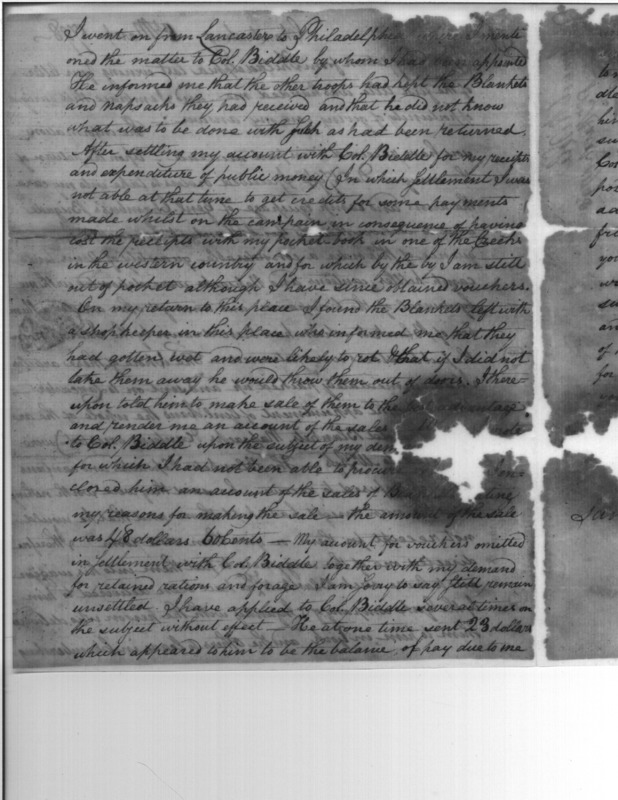 I went on from Lancaster to Philadelphia where I menti
oned the matter to Col. Biddle by whom I had been appointed
He informed me that the other troops had kept the Blankets
and napsacks they had received and that he did not know
what was to be done with such as had been returned.
After settling my account with Col. Biddle for my receipts
and expenditure of public money (In which settlement I was
not able at that time to get credits for some payments
made whilst on the campain in consequence of having
lost the receipts with my pocket book in one of the Creeks
in the western country and for which by the by I am still
out of pocket although I have since obtained vouchers.
On my return to this place I found the Blankets left with
a shopkeeper in this place who informed me that they
had gotten wet and were likely to rot & that if I did not
take them away he would throw them out of doors. I there-
upon told him to make sale of them to the best advantage
and render me an account of the sales
to Col. Biddle upon the subject of my dem
for which I had not been able to procure
closed him an account of the sales of Blankets
my reasons for making the sale – the amount of the sale
was 48 dollars 60 cents – My acount for vouchers omitted
in settlement with Col. Biddle together with my demand
for retained rations and forage I am sorry to say still remain
unsettled. I have applied to Col. Biddle several times on
the subject without effect – He at one time sent 23 dollars
which appeared to him to be the balance of pay due to me
to
dle
him
su
Col
po
aa
fri
yo
w
su
an
of
for
Jan